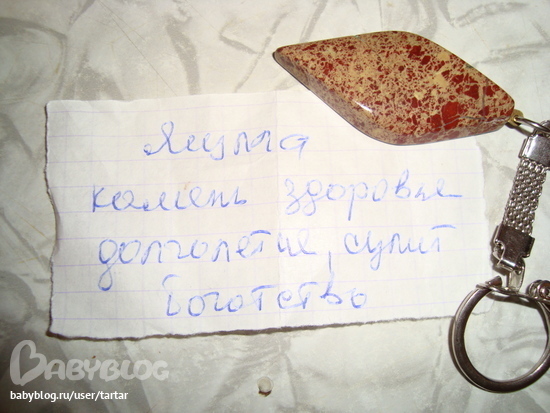 Яшма
камень здоровье
долголетие, сулит
Боготство
BABYBLOG
babyblog.ru/user/tartar